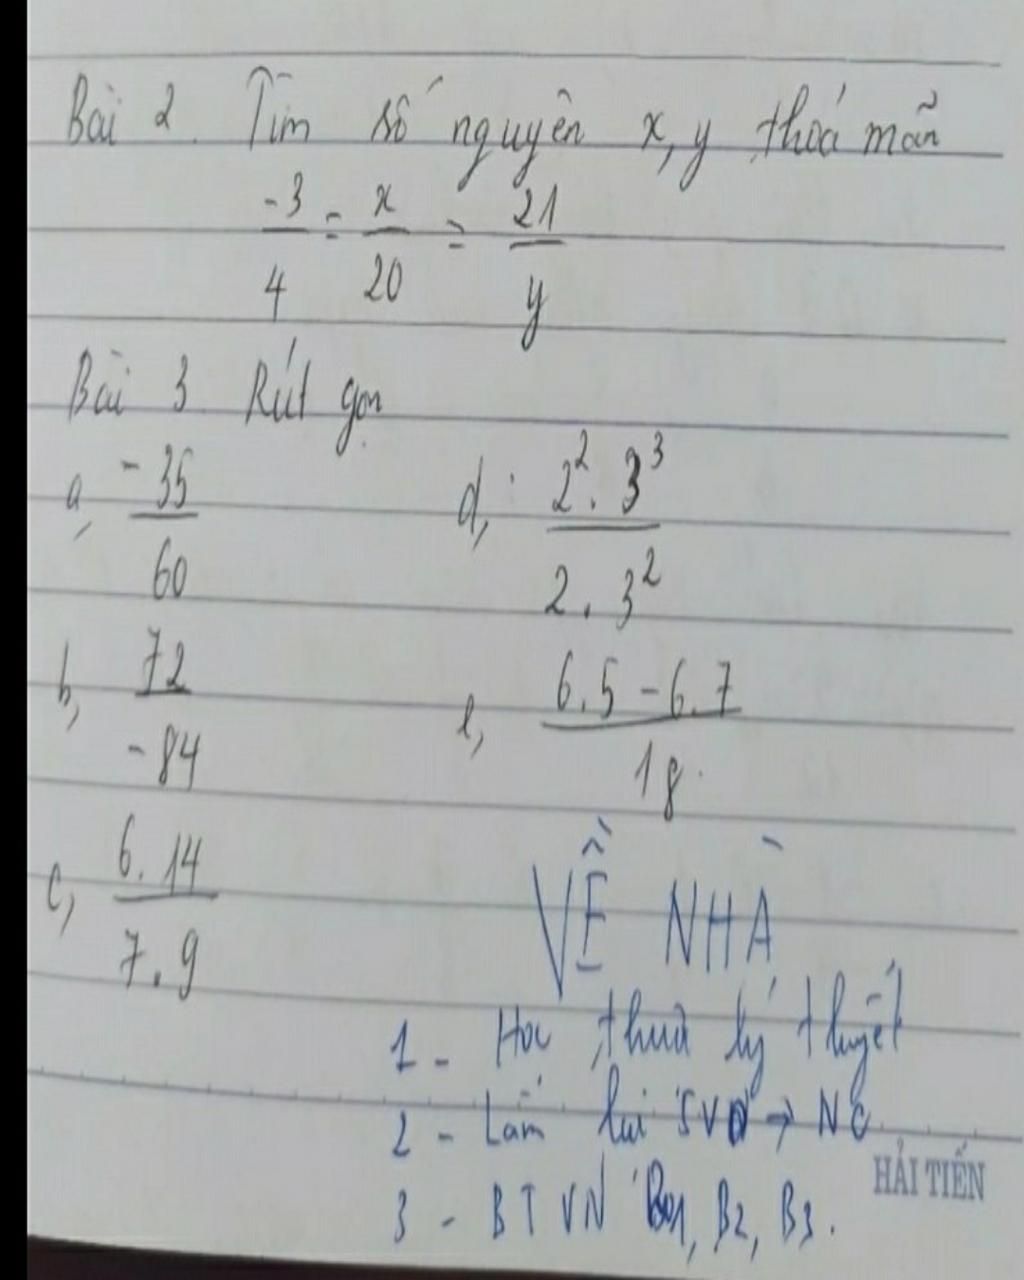 Bài 2. Tìm số nguyên x, y thoả mãn
-3/4 = x/20 = 21/y
Bài 3. Rút gọn
a, -35/60
d, 2². 3³/2. 3²
b, 72/-84
e, 6.5 - 6.7/18
c, 6. 14/7. 9
VỀ NHÀ
1 - Học thuộ lý thuyết
2 - Làm lại → NC
3 - BTVN B1, B2, B3.
HẢI TIẾN